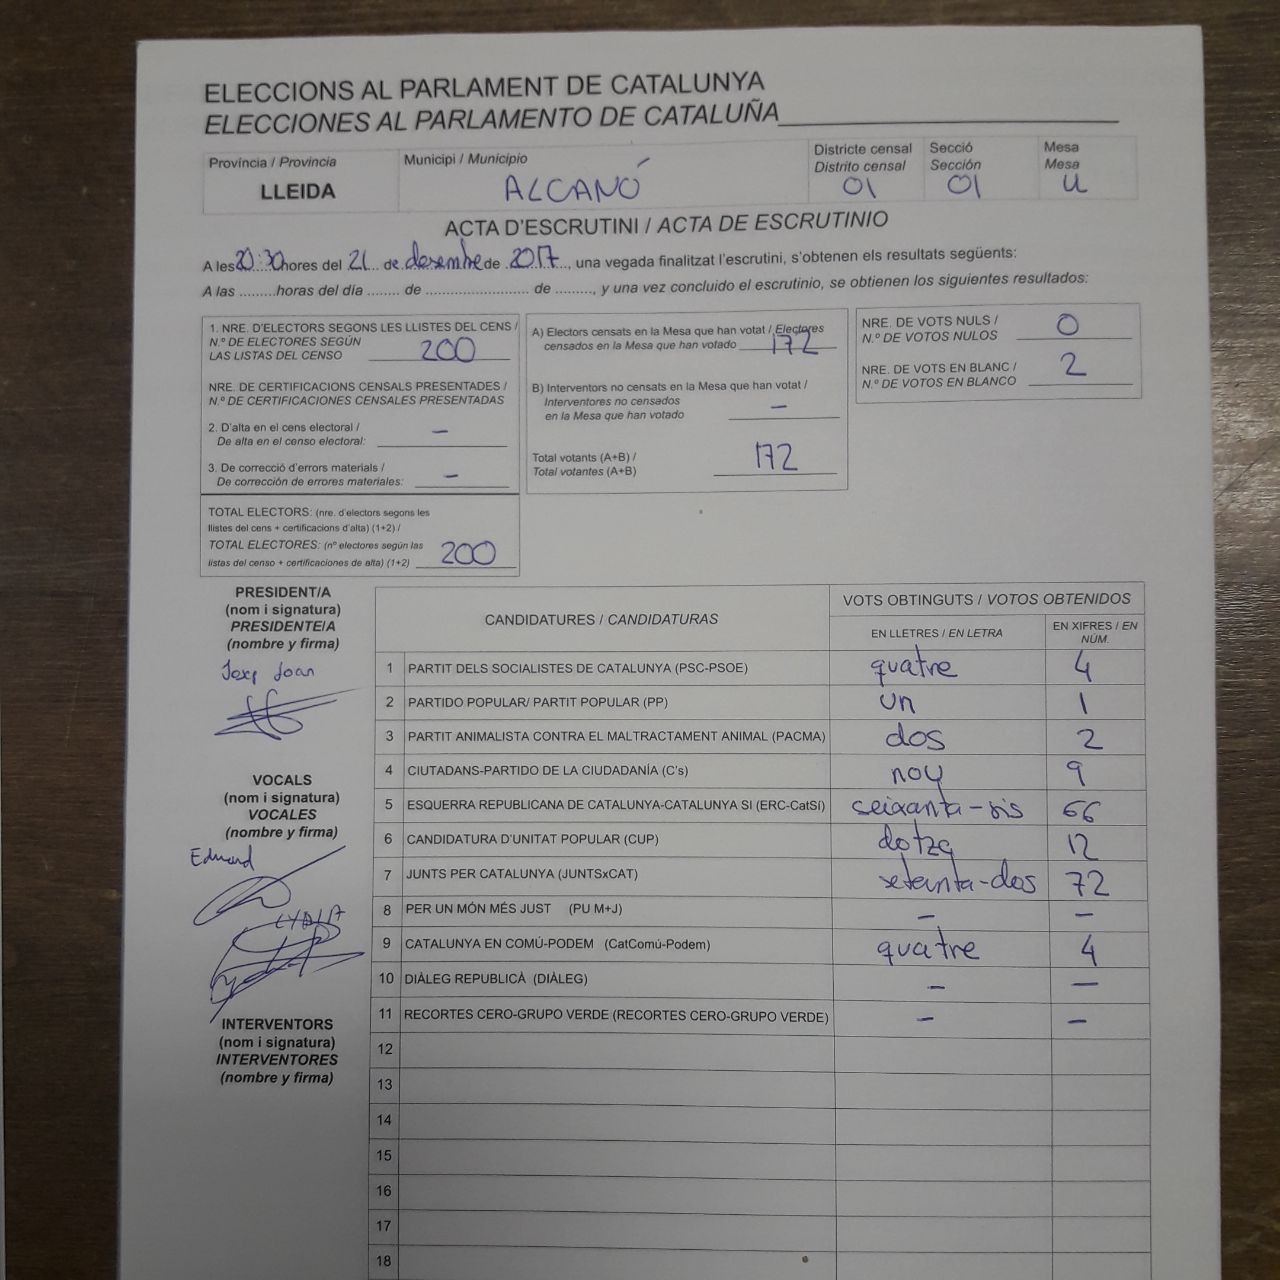 ELECCIONS AL PARLAMENT DE CATALUNYA
ELECCIONES AL PARLAMENTO DE CATALUÑA
Província / Provincia
LLEIDA
Municipi / Municipio
ALCANÓ
Districte censal
Distrito censal
01
Secció
Sección
01
Mesa
Mesa
U
ACTA D'ESCRUTINI / ACTA DE ESCRUTINIO
A les 20:30 hores del 21 de desembre de 2017, una vegada finalitzat l'escrutini, s'obtenen els resultats següents:
A las .........horas del día ........ de ......................... de ........., y una vez concluido el escrutinio, se obtienen los siguientes resultados:
1. NRE. D'ELECTORS SEGONS LES LLISTES DEL CENS /
N.º DE ELECTORES SEGÚN
LAS LISTAS DEL CENSO 200
NRE. DE CERTIFICACIONS CENSALS PRESENTADES /
N.º DE CERTIFICACIONES CENSALES PRESENTADAS
2. D'alta en el cens electoral /
De alta en el censo electoral: –
3. De correcció d'errors materials /
De corrección de errores materiales: –
TOTAL ELECTORS: (nre. d'electors segons les
llistes del cens + certificacions d'alta) (1+2) /
TOTAL ELECTORES: (nº electores según las
listas del censo + certificaciones de alta) (1+2) 200
A) Electors censats en la Mesa que han votat / Electores
censados en la Mesa que han votado 172
B) Interventors no censats en la Mesa que han votat /
Interventores no censados
en la Mesa que han votado –
Total votants (A+B) /
Total votantes (A+B) 172
NRE. DE VOTS NULS /
N.º DE VOTOS NULOS 0
NRE. DE VOTS EN BLANC /
N.º DE VOTOS EN BLANCO 2
PRESIDENT/A
(nom i signatura)
PRESIDENTE/A
(nombre y firma)
Josep Joan
VOCALS
(nom i signatura)
VOCALES
(nombre y firma)
Eduard
LYDIA
INTERVENTORS
(nom i signatura)
INTERVENTORES
(nombre y firma)
CANDIDATURES / CANDIDATURAS
VOTS OBTINGUTS / VOTOS OBTENIDOS
EN LLETRES / EN LETRA
EN XIFRES / EN NÚM.
1 PARTIT DELS SOCIALISTES DE CATALUNYA (PSC-PSOE) quatre 4
2 PARTIDO POPULAR/ PARTIT POPULAR (PP) un 1
3 PARTIT ANIMALISTA CONTRA EL MALTRACTAMENT ANIMAL (PACMA) dos 2
4 CIUTADANS-PARTIDO DE LA CIUDADANÍA (C's) nou 9
5 ESQUERRA REPUBLICANA DE CATALUNYA-CATALUNYA SI (ERC-CatSí) seixanta-sis 66
6 CANDIDATURA D'UNITAT POPULAR (CUP) dotze 12
7 JUNTS PER CATALUNYA (JUNTSxCAT) setanta-dos 72
8 PER UN MÓN MÉS JUST (PU M+J) – –
9 CATALUNYA EN COMÚ-PODEM (CatComú-Podem) quatre 4
10 DIÀLEG REPUBLICÀ (DIÀLEG) – –
11 RECORTES CERO-GRUPO VERDE (RECORTES CERO-GRUPO VERDE) – –
12
13
14
15
16
17
18